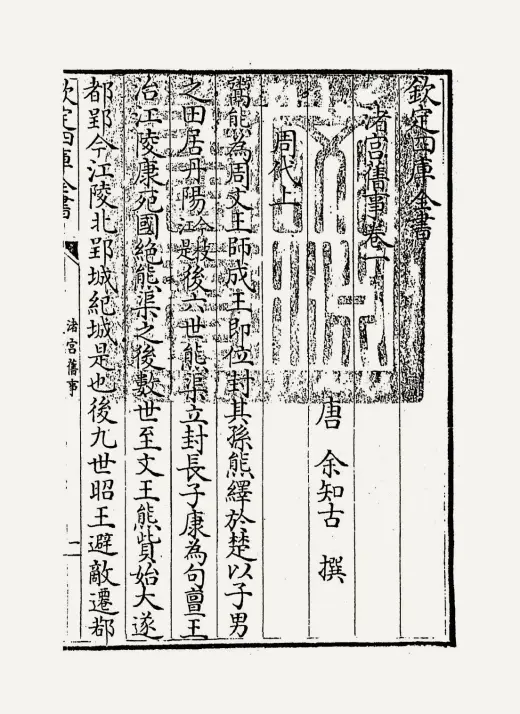 欽定四庫全書
渚宮舊事卷一
唐 余知古 撰
周代上
鬻熊為周文王師成王即位封其孫熊繹於楚以子男
之田居丹陽今枝江是後六世熊渠立封長子康為句亶王
治江陵康死國絶熊渠之後數世至文王熊貲始大遂
都郢今江陵北郢城紀城是也後九世昭王避敵遷鄀
欽定四庫全書
渚宮舊事
一